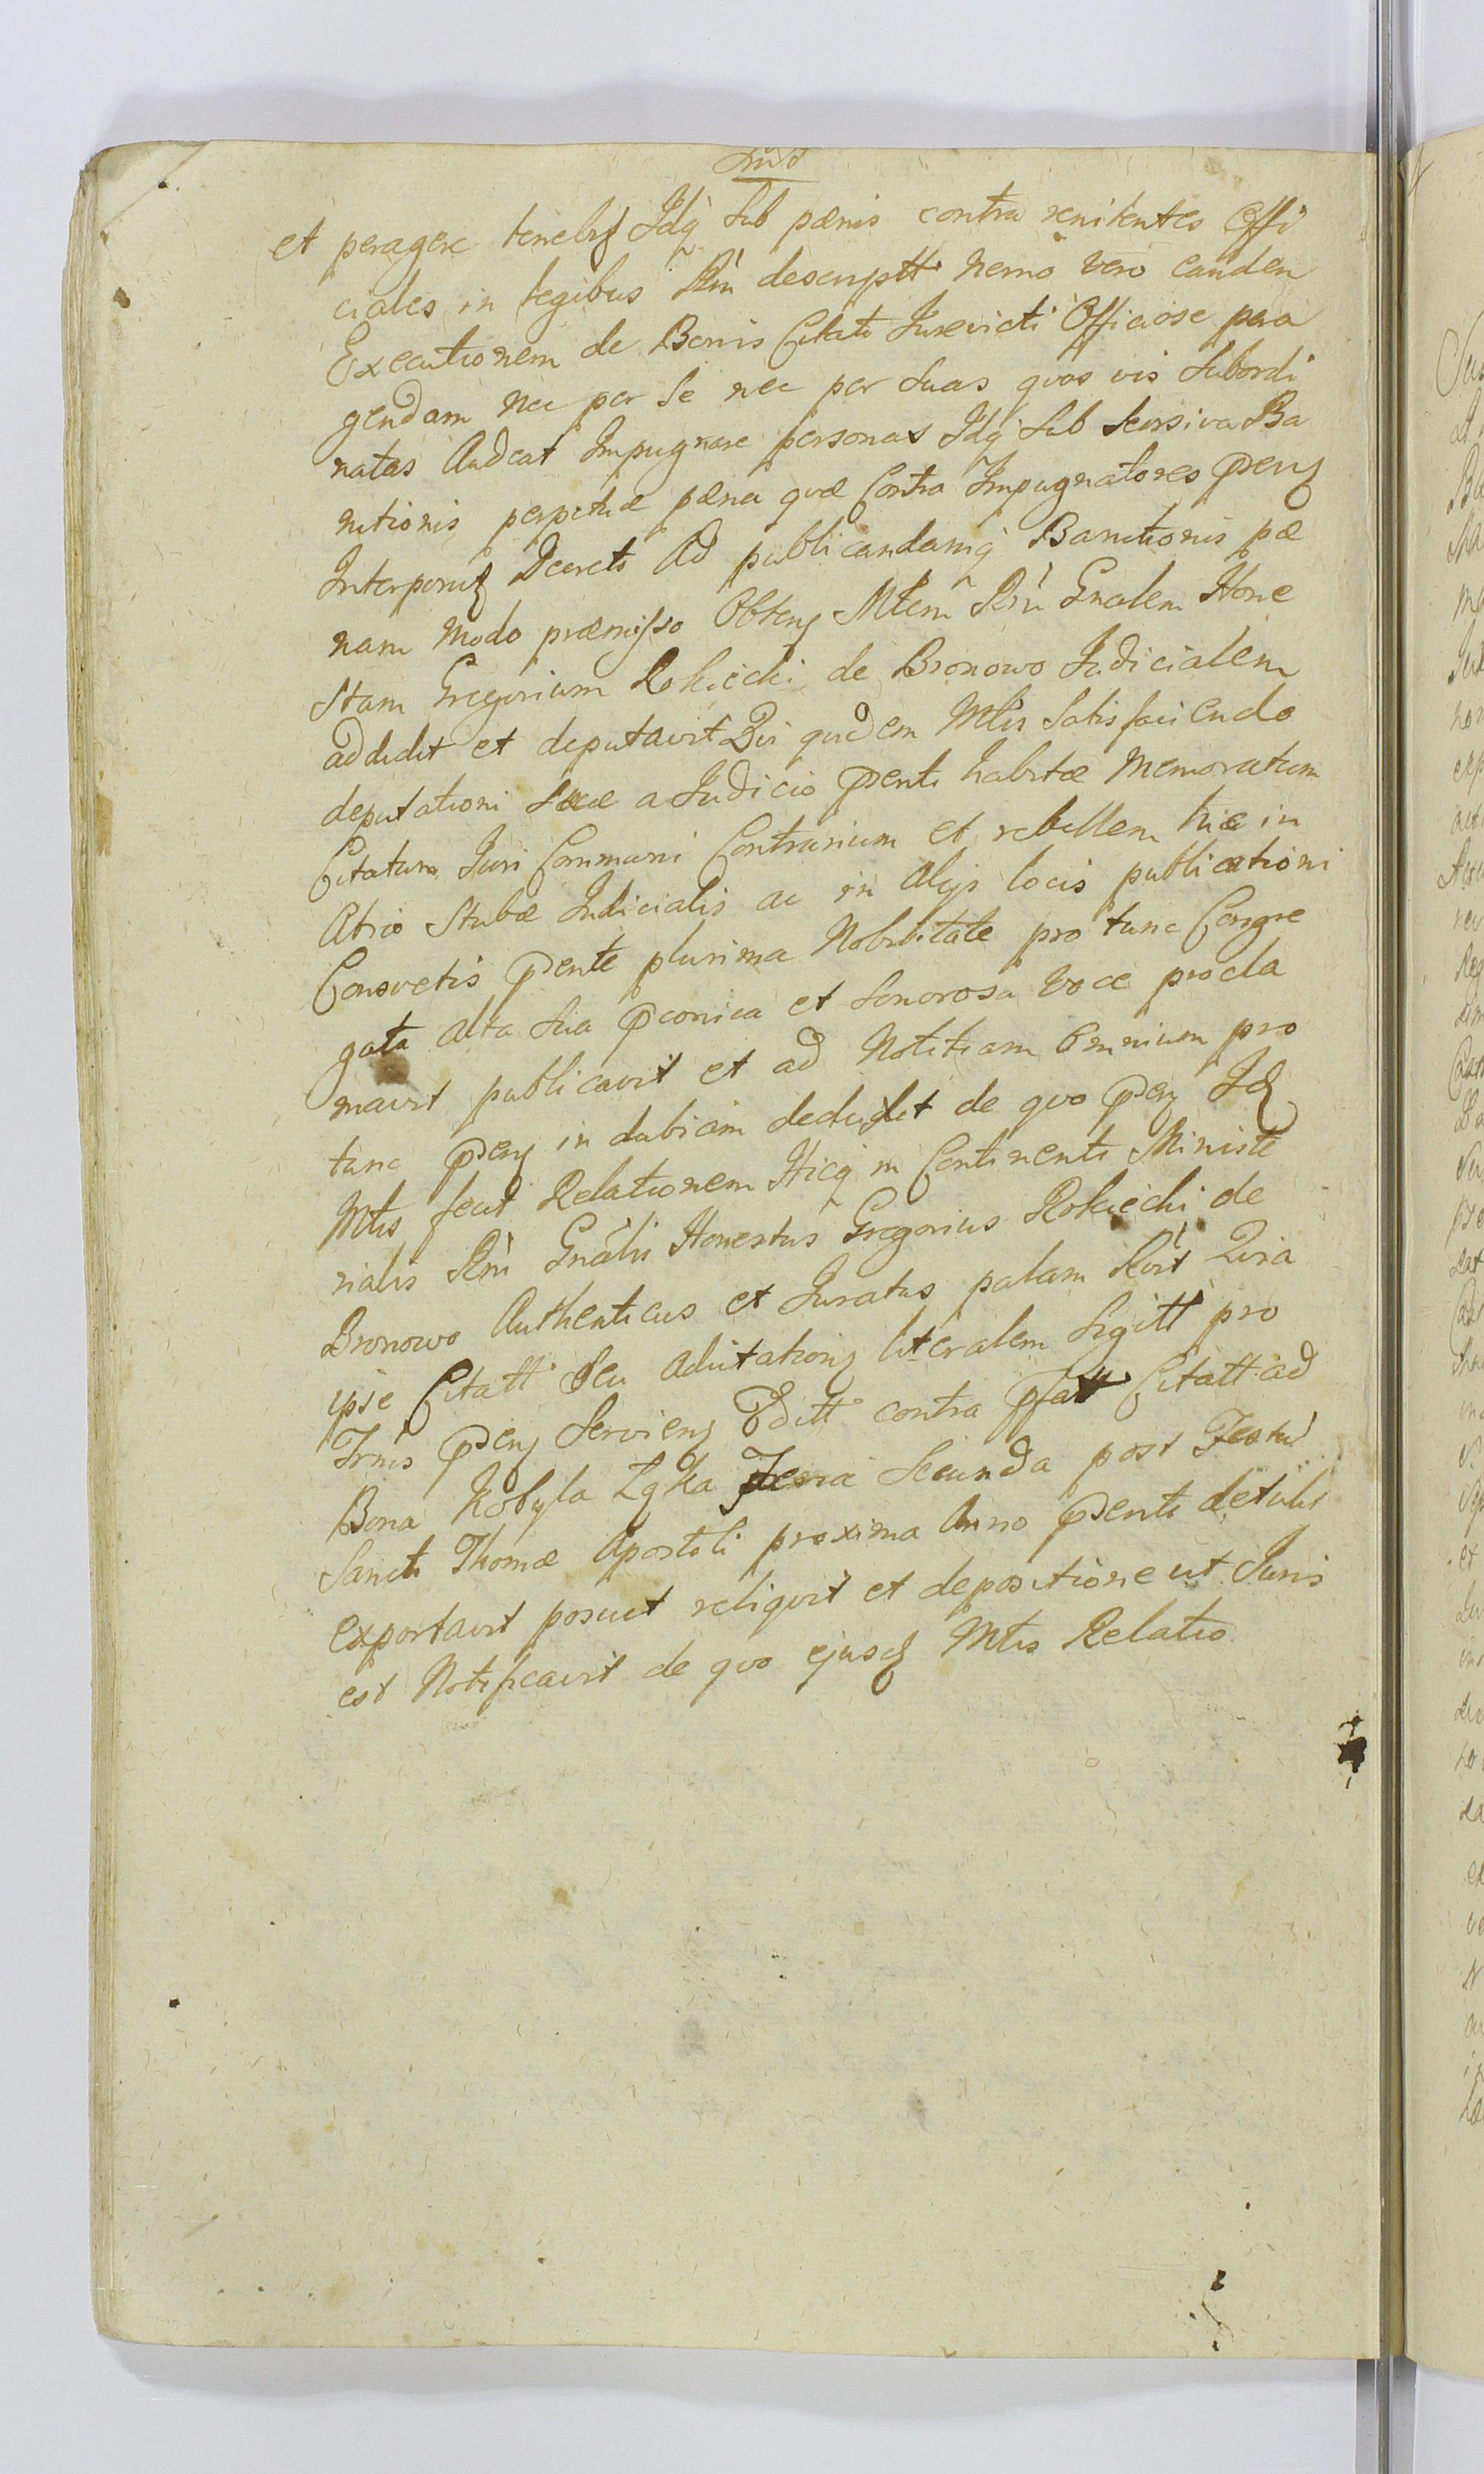 et peragere tenebr Idq sub pænis contra renitentes Offi
ciales in legibus Rni descriptt nemo vero eanden
Executionem de Bonis Citati Jurevicti Officiose pera
gendam nec per se nec per suas qvas vis Subordi
natas Audeat Impugnare personas Idq sub Seorsiva Ba
nitionis perpetuæ pæna qvæ Contra Impugnatores Pens
Interponet Decreto Ad publicandamq Banitionis pæ
nam modo præmisso Obtens Mtem Rni Gnalem Hone
stam Gregorium Rokicki de Bronowo Judicialem
addidit et deputavit Qui quidem Mtis Satisfaciendo
deputationi suæ a Judicio Penti habitæ Memoratum
Citatum Juri Communi Contrarium et rebellem hic in
Atrio Stubæ Judicialis ac in Alijs locis publicationi
Consvetis Pente plurima Nobilitate pro tunc Congre
gata alta sua Pconica et Sonorosa voce procla
mavit publicavit et ad Notitiam Omnium pro
tunc Pen in dubiam deduxit de qvo Pens Id
Mtis fecit Relationem Hicq in Continenti Ministe
rialis Rni Gnalis Honestus Gregorius Rokicki de
Bronowo Authenticus et Juratus palam Rvit Qvia
ipse Citatt seu Adcitationis literalem Sigitt pro
Trnis Pens Serviens Editt contra Pfatt Citatt ad
Bona Kobyla Łąka Feria Secunda post Festu
Sancti Thomæ Apostoli proxima Anno Penti detulit
exportavit posuit reliqvit et depositione ut Juris
est Notificavit de qvo ejusd Mtis Relatio